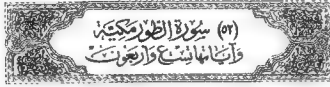 (٥٢) سُورَةِ الطُّورِ مَكِيَّة
وَآيَاتُهَا تِسْعٌ وَأَرْبَعُونَ